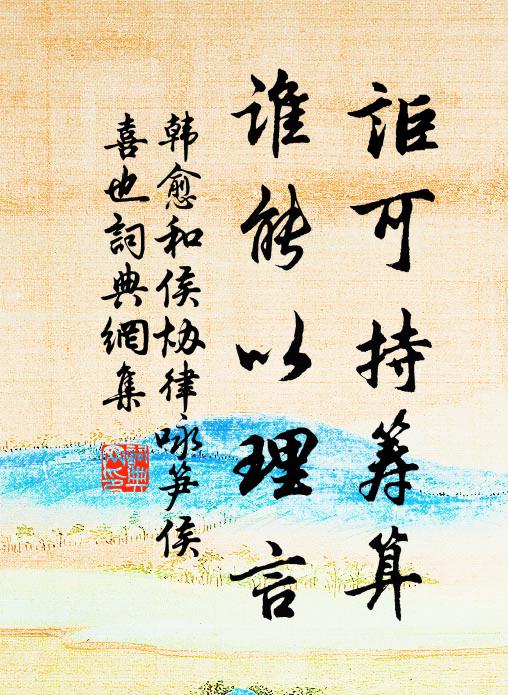 詎可持筹算
誰能以理言
韩愈和侯协律咏笋侯
喜也詞典網集